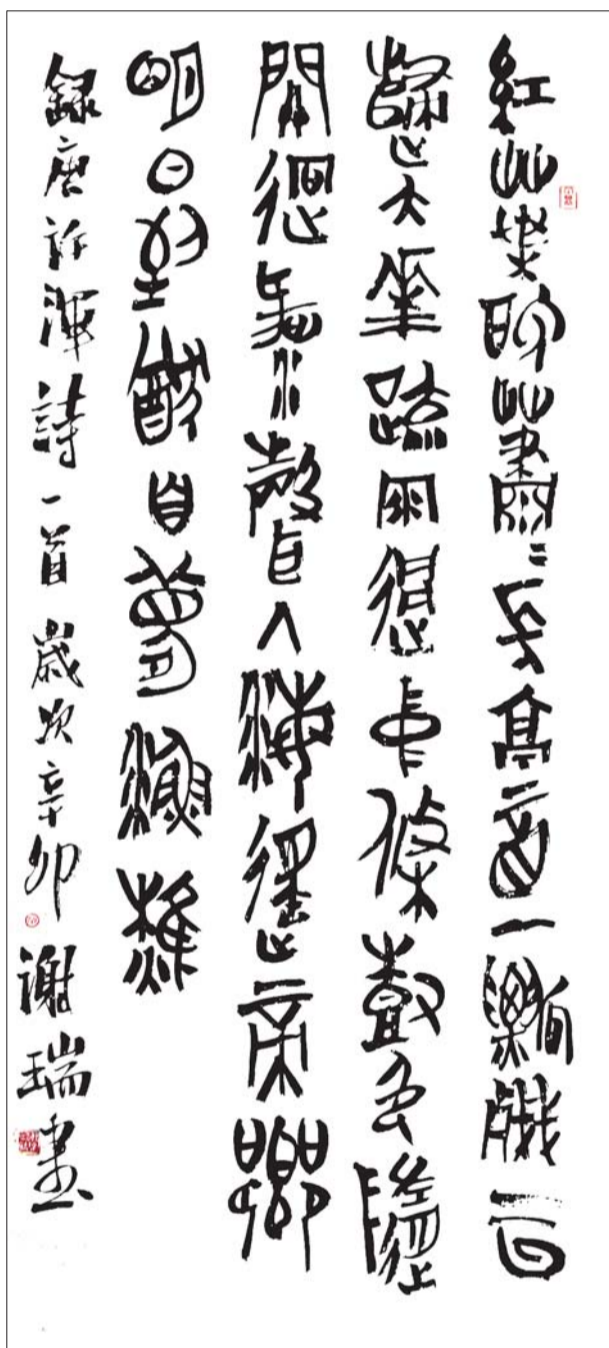 紅葉晚蕭蕭長亭酒一瓢殘雲
歸太華疏雨過中條樹色隨
關迥河聲入海遙帝鄉
明日到猶自夢漁樵
錄唐許渾詩一首歲次辛卯謝瑞書